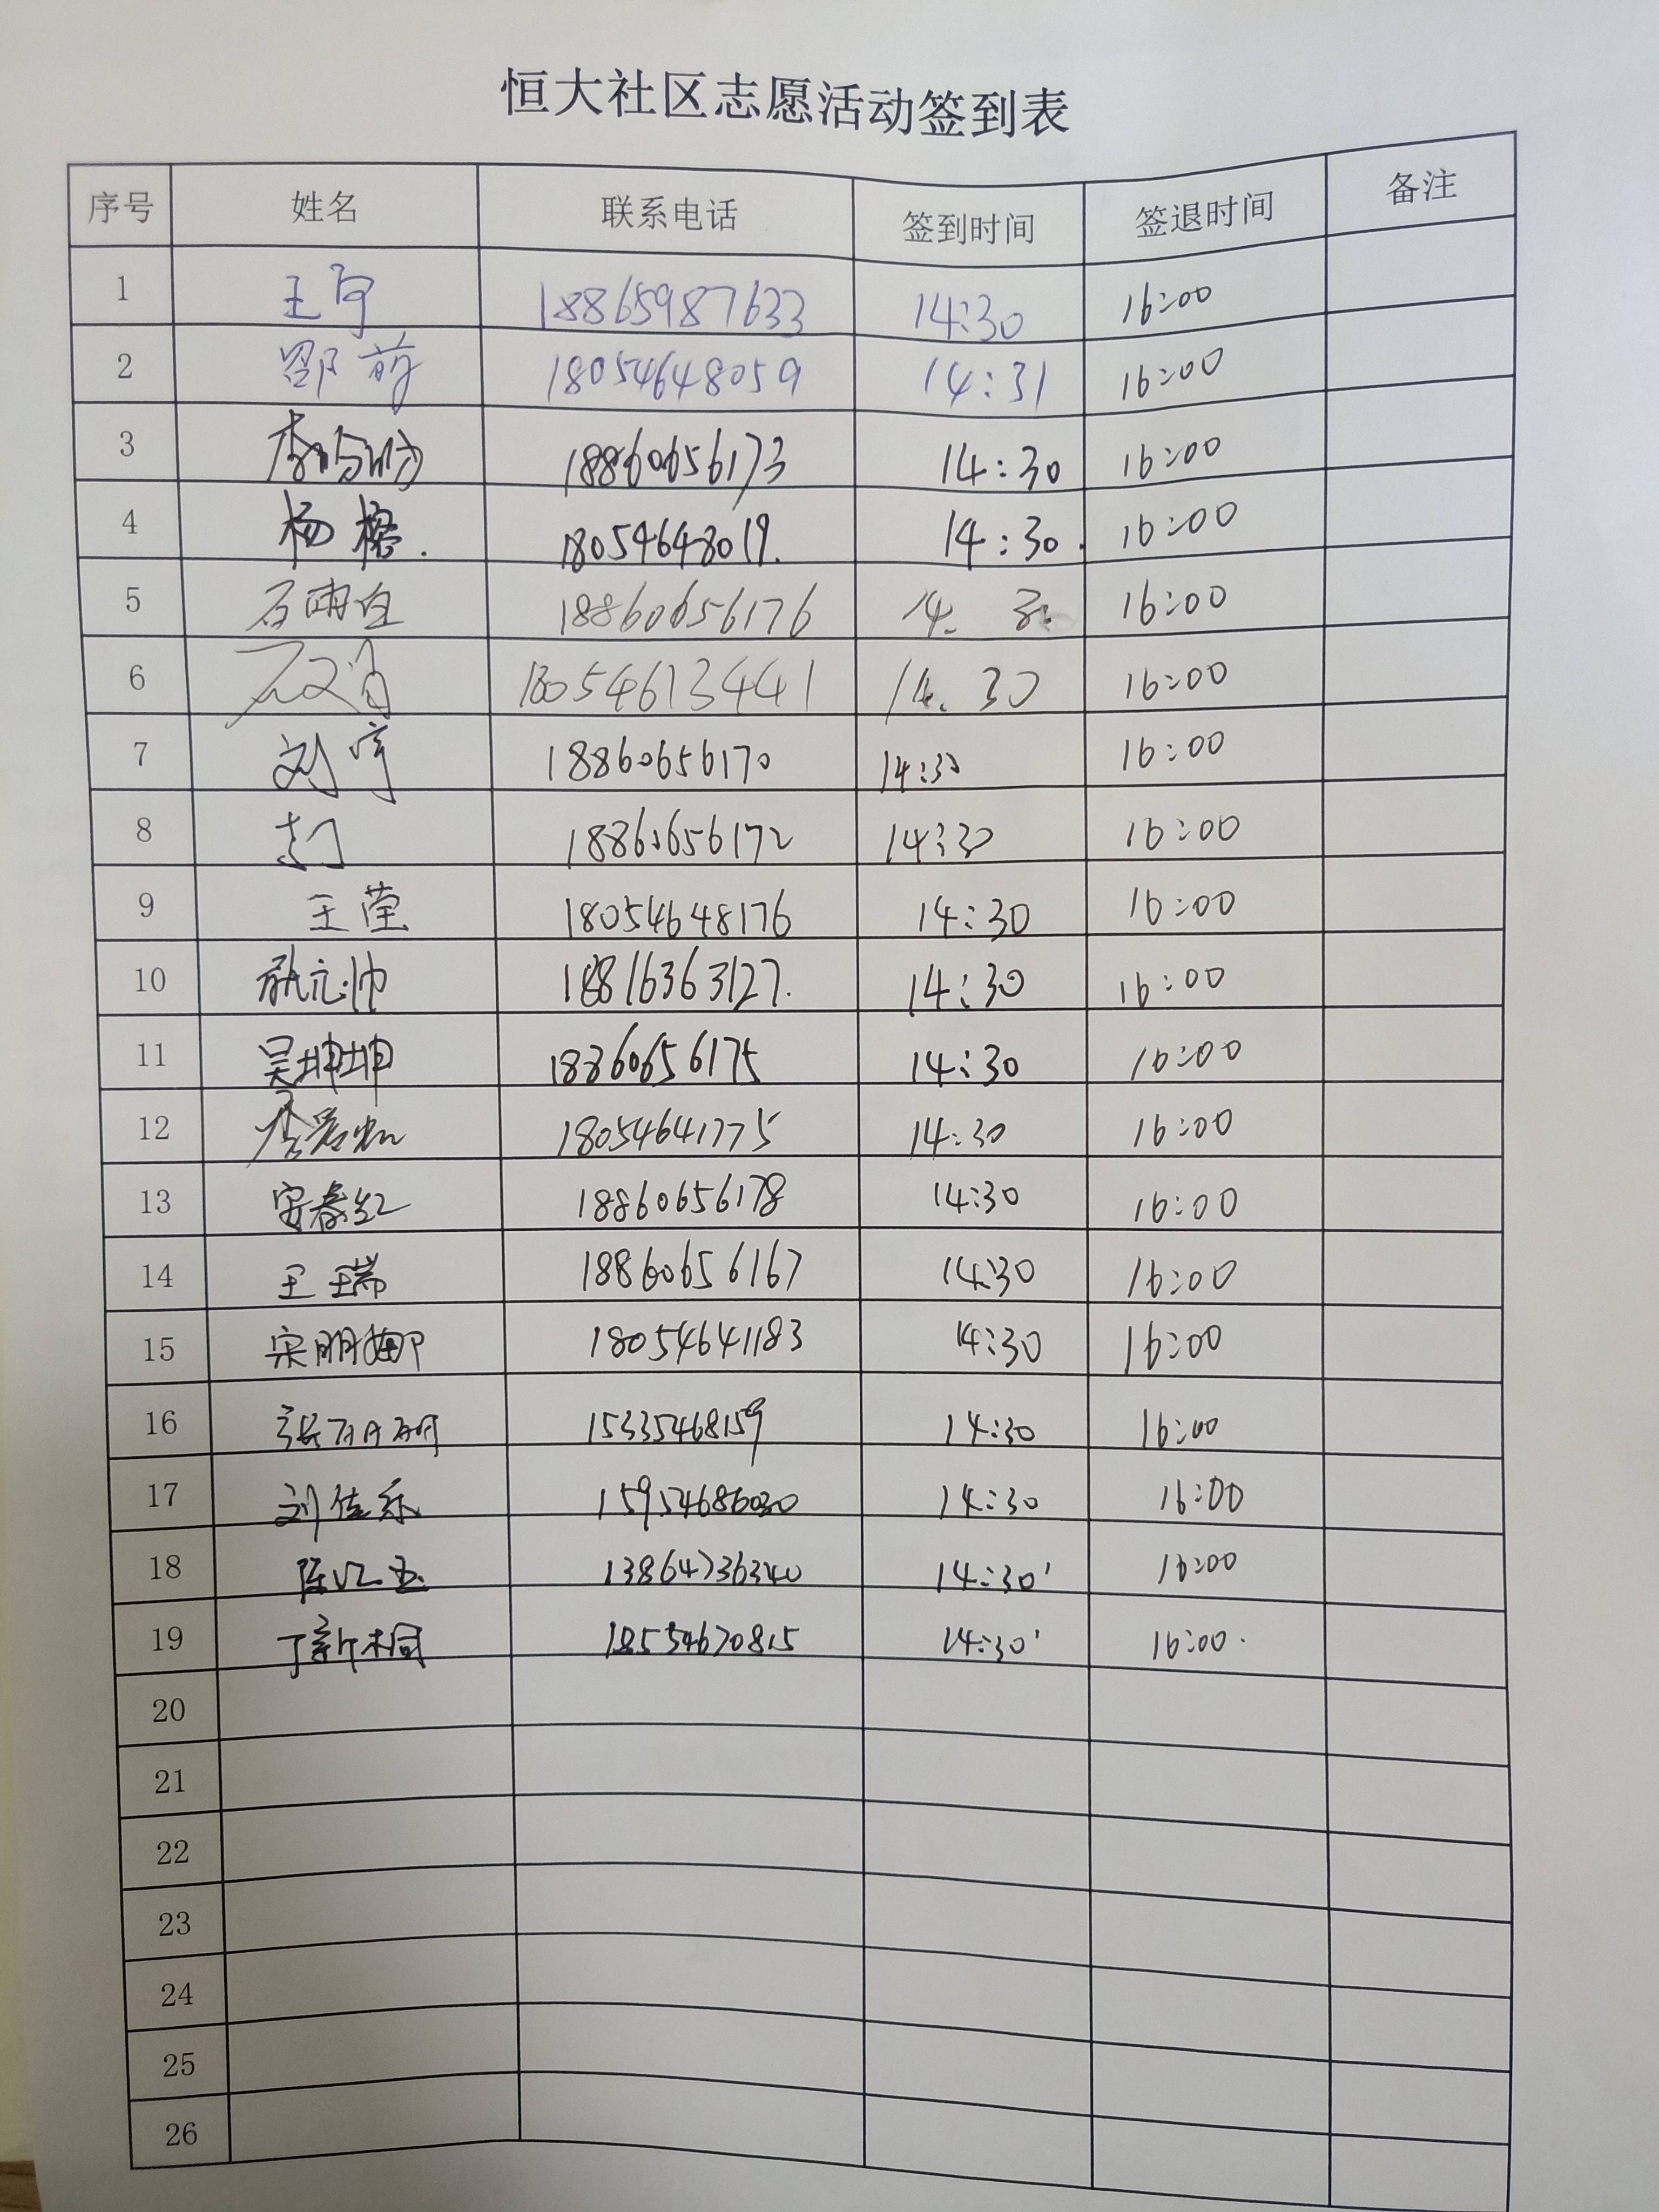 恒大社区志愿活动签到表
序号 姓名 联系电话 签到时间 签退时间 备注
1 王宇 18865987633 14:30 16:00
2 邵萌 18054648059 14:31 16:00
3 18860656173 14:30 16:00
4 杨榕. 18054648019. 14:30. 16:00
5 石雨生 18860656176 14. 30 16:00
6 18054613441 14. 30 16:00
7 刘宇 18860656170 14:30 16:00
8 18860656172 14:30 16:00
9 王莹 18054648176 14:30 16:00
10 18816363127. 14:30 16:00
11 吴坤坤 18860656175 14:30 16:00
12 18054641775 14:30 16:00
13 安春红 18860656178 14:30 16:00
14 王瑞 18860656167 14:30 16:00
15 宋朋娜 18054641183 14:30 16:00
16 张丽丽 15335468159 14:30 16:00
17 刘佳乐 15954686030 14:30 16:00
18 13864736340 14:30' 16:00
19 丁新桐 18554670815 14:30' 16:00.
20
21
22
23
24
25
26